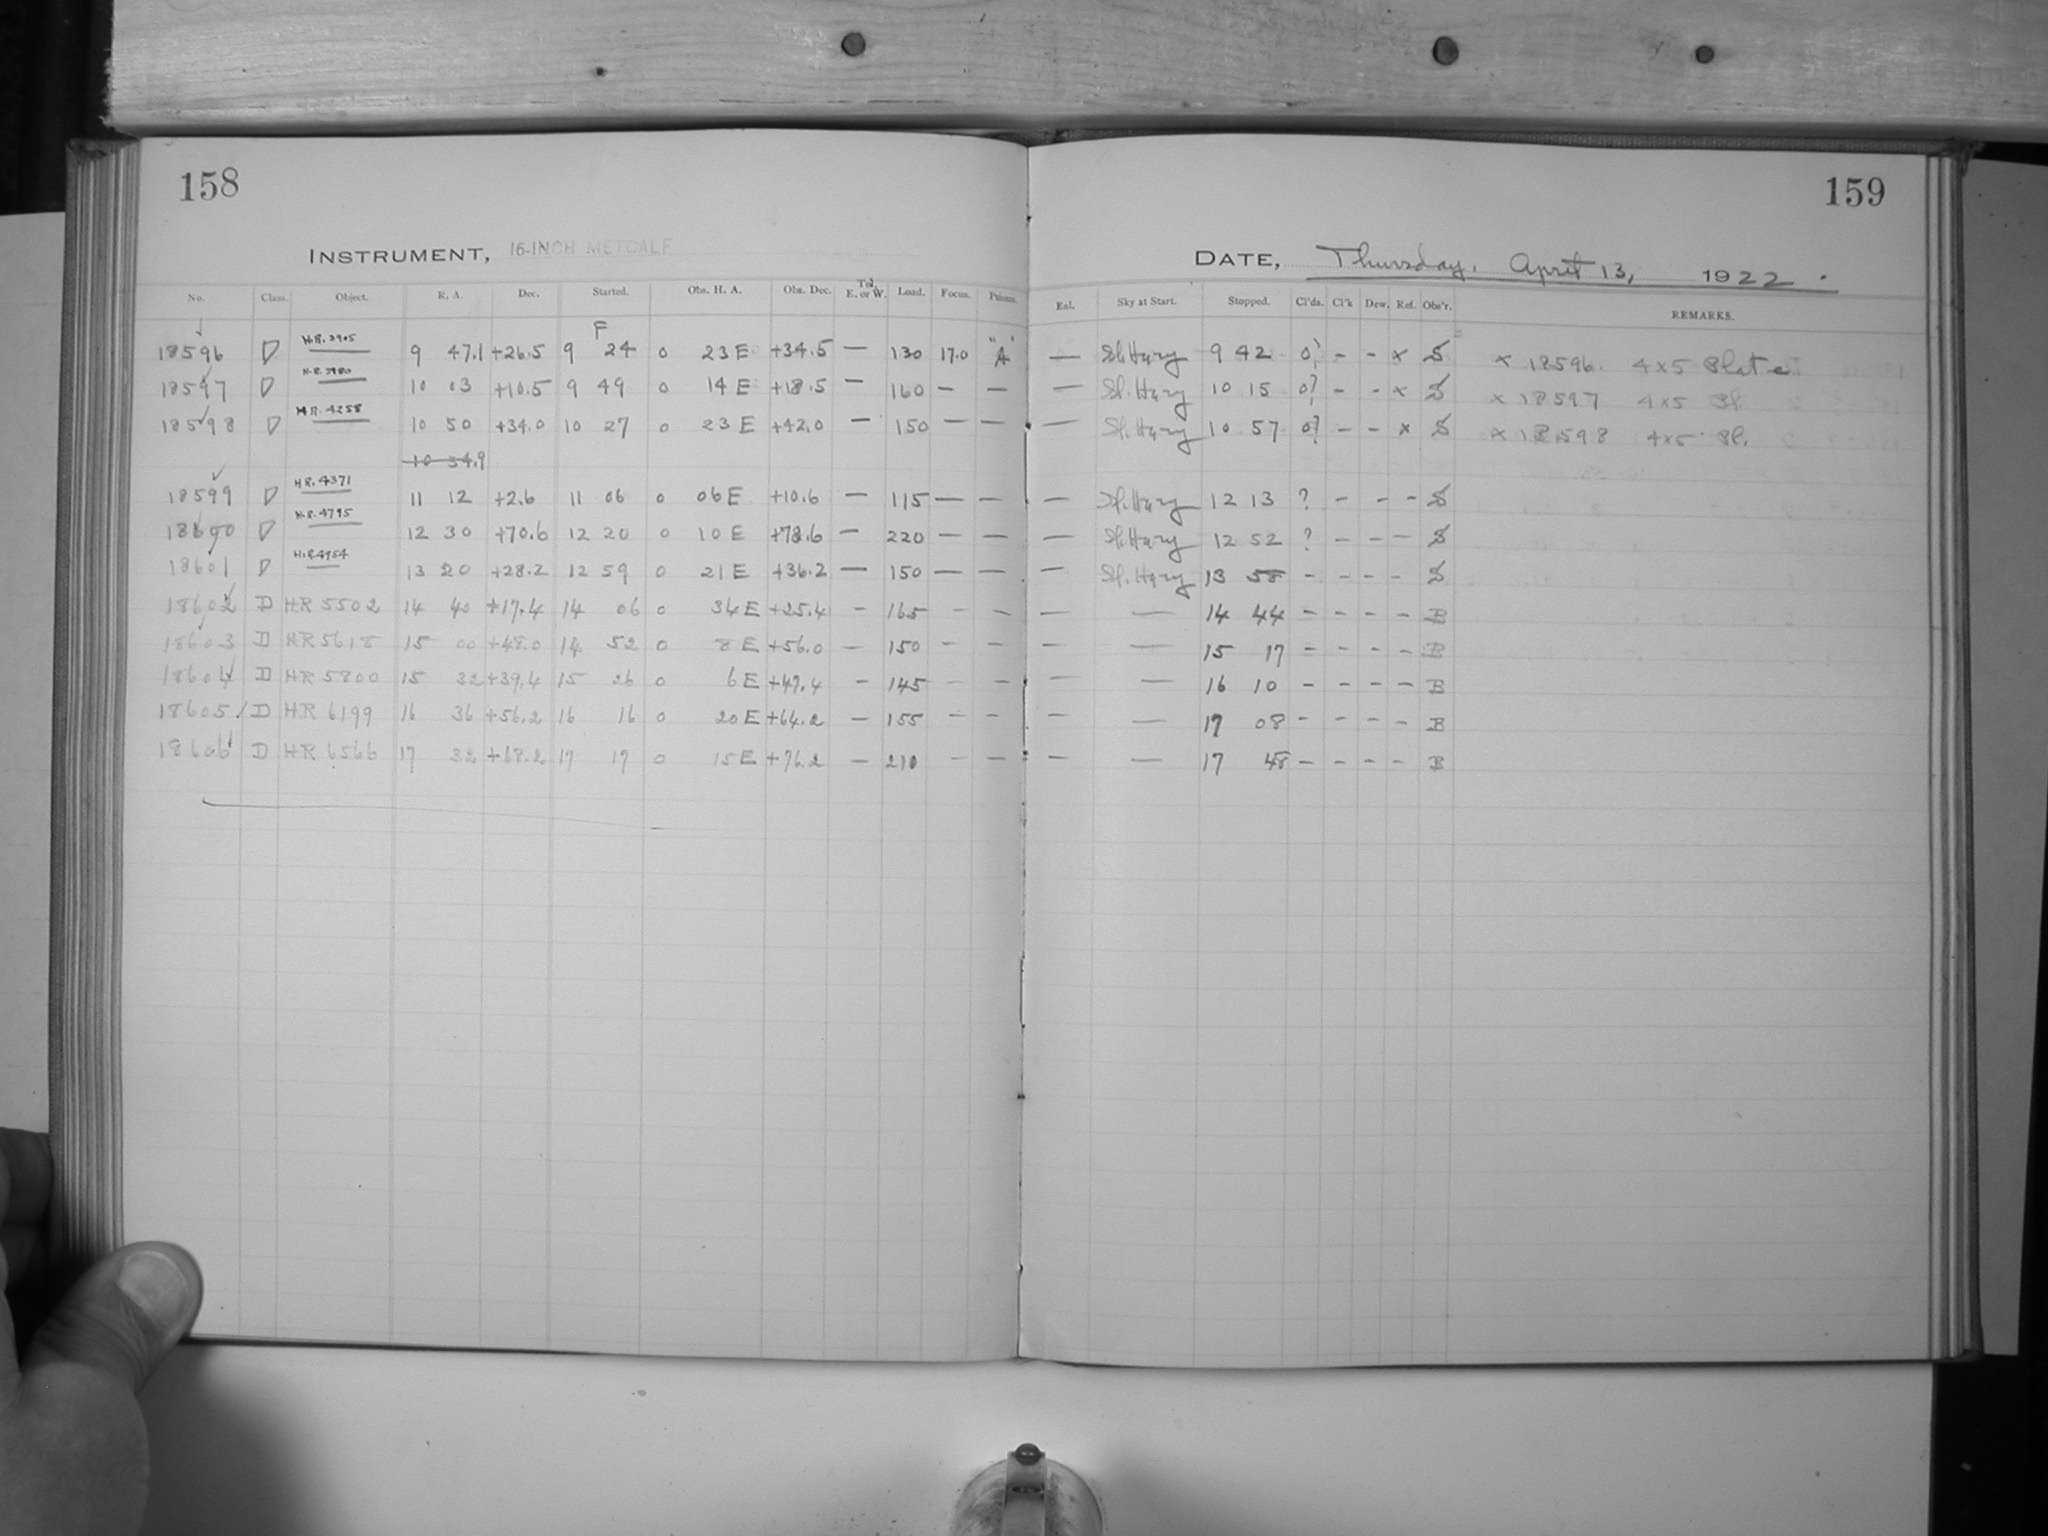 158
159
INSTRUMENT, 16-INCH METCALF
DATE, Thursday, April 13, 1922.
No. Class. Object. R. A. Dec. Started. Obs. H. A. Obs. Dec. Tel. E. or W. Load. Focus. Prisms. Eal. Sky at Start. Stopped. Cl'ds. Cl'k Dew. Ref. Obs'r. REMARKS.
F
18596 D H.R. 3905 9 47.1 +26.5 9 24 0 23 E +34.5 — 130 17.0 "A" — Sl. Hazy 9 42 0? - - x S x 18596. 4x5 Plate
18597 D H.R. 3980 10 03 +10.5 9 49 0 14 E +18.5 — 160 — — — Sl. Hazy 10 15 0? - - x S x 18597 4x5 Pl.
18598 D H.R. 4258 10 50 +34.0 10 27 0 23 E +42.0 — 150 — — — Sl. Hazy 10 57 0? - - x S x 18598 4x5 Pl.
10 54.9
18599 D H.R. 4371 11 12 +2.6 11 06 0 06 E +10.6 — 115 — — — Sl. Hazy 12 13 ? - - - S
18600 D H.R. 4795 12 30 +70.6 12 20 0 10 E +78.6 — 220 — — — Sl. Hazy 12 52 ? - - - S
18601 D H.R. 4954 13 20 +28.2 12 59 0 21 E +36.2 — 150 — — — Sl. Hazy 13 58 - - - - S
18602 D HR 5502 14 40 +17.4 14 06 0 34 E +25.4 — 165 - - — — 14 44 - - - - B
18603 D HR 5618 15 00 +48.0 14 52 0 8 E +56.0 — 150 - - — — 15 17 - - - - B
18604 D HR 5800 15 32 +39.4 15 26 0 6 E +47.4 — 145 - - — — 16 10 - - - - B
18605 D HR 6199 16 36 +56.2 16 16 0 20 E +64.2 — 155 - - — — 17 08 - - - - B
18606 D HR 6566 17 32 +68.2 17 17 0 15 E +76.2 — 210 - - — — 17 48 - - - - B